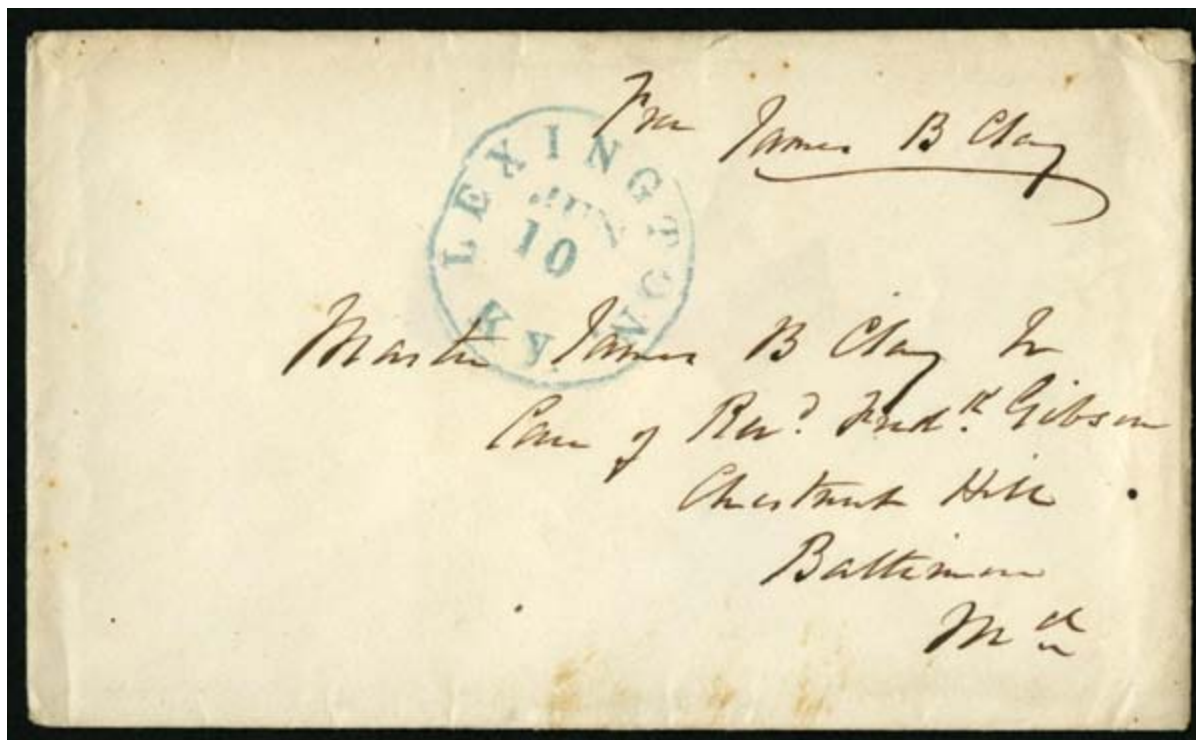 Free James B Clay
LEXINGTON Ky
10
Master James B Clay Jr
Care of Revd. Fredk. Gibson
Chestnut Hill
Baltimore
Md